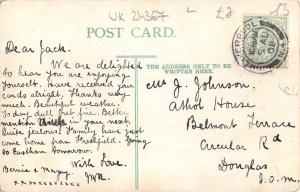 WK 24367
£2
POST CARD.
THE ADDRESS ONLY TO BE
WRITTEN HERE.
LIVERPOOL
5 AU
08
Dear Jack.
We are delighted
to hear you are enjoying
yourself. Have received your
cards alright. Thanks very
much. Beautiful weather.
To-day dull but fine. Better
mention Uncle in your next
Quite jealous! Family have just
come home from Freshfield. Going
to Eastham tomorrow.
With Love.
Bernie & Mary
xxxxxxxxxxx
J. Johnson.
Athol House
Belmont Terrace
Circular Rd
Douglas
I.o.m.